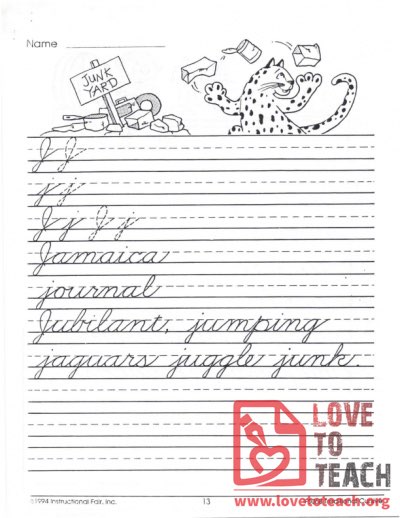 Name
JUNK
YARD
J J
j j
J j J j
Jamaica
journal
Jubilant, jumping
jaguars juggle junk.
LOVE
TO
TEACH
©1994 Instructional Fair, Inc.
13
www.lovetoteach.org